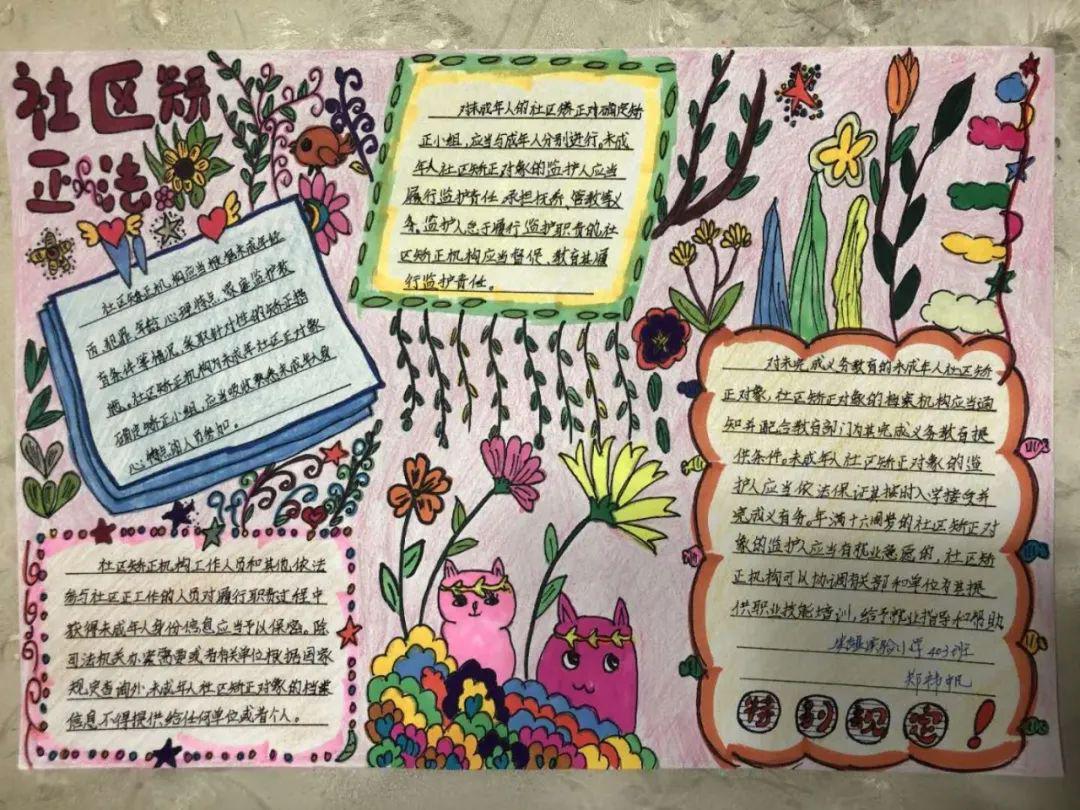 社区矫
正法
社区矫正机构应当根据未成年社
因、犯罪年龄、心理特点、家庭监护教
育条件等情况,采取针对性的矫正措
施。社区矫正机构为未成年社区正对象
确定矫正小组,应当吸收熟悉未成年人身
心特点的人员参加。
对未成年人的社区矫正对确定矫
正小组,应当与成年人分别进行。未成
年人社区矫正对象的监护人应当
履行监护责任,承担抚养、管教等义
务,监护人怠于履行监护职责的社
区矫正机构应当督促、教育其履
行监护责任。
社区矫正机构工作人员和其他依法
参与社区正工作的人员对履行职责过程中
获得未成年人身份信息应当予以保密。除
司法机关办案需要或者有关单位根据国家
规定查询外,未成年人社区矫正对象的档案
信息不得提供给任何单位或者个人。
对未完成义务教育的未成年人社区矫
正对象,社区矫正对象的档案机构应当通
知并配合教育部门为其完成义务教育提
供条件。未成年人社区矫正对象的监
护人应当依法保证其按时入学接受并
完成义务。年满十六周岁的社区矫正对
象的监护人应当有就业意愿的,社区矫
正机构可以协调有关部和单位为其提
供职业技能培训,给予就业指导和帮助
实验小学403班
郑祎帆
特别规定!